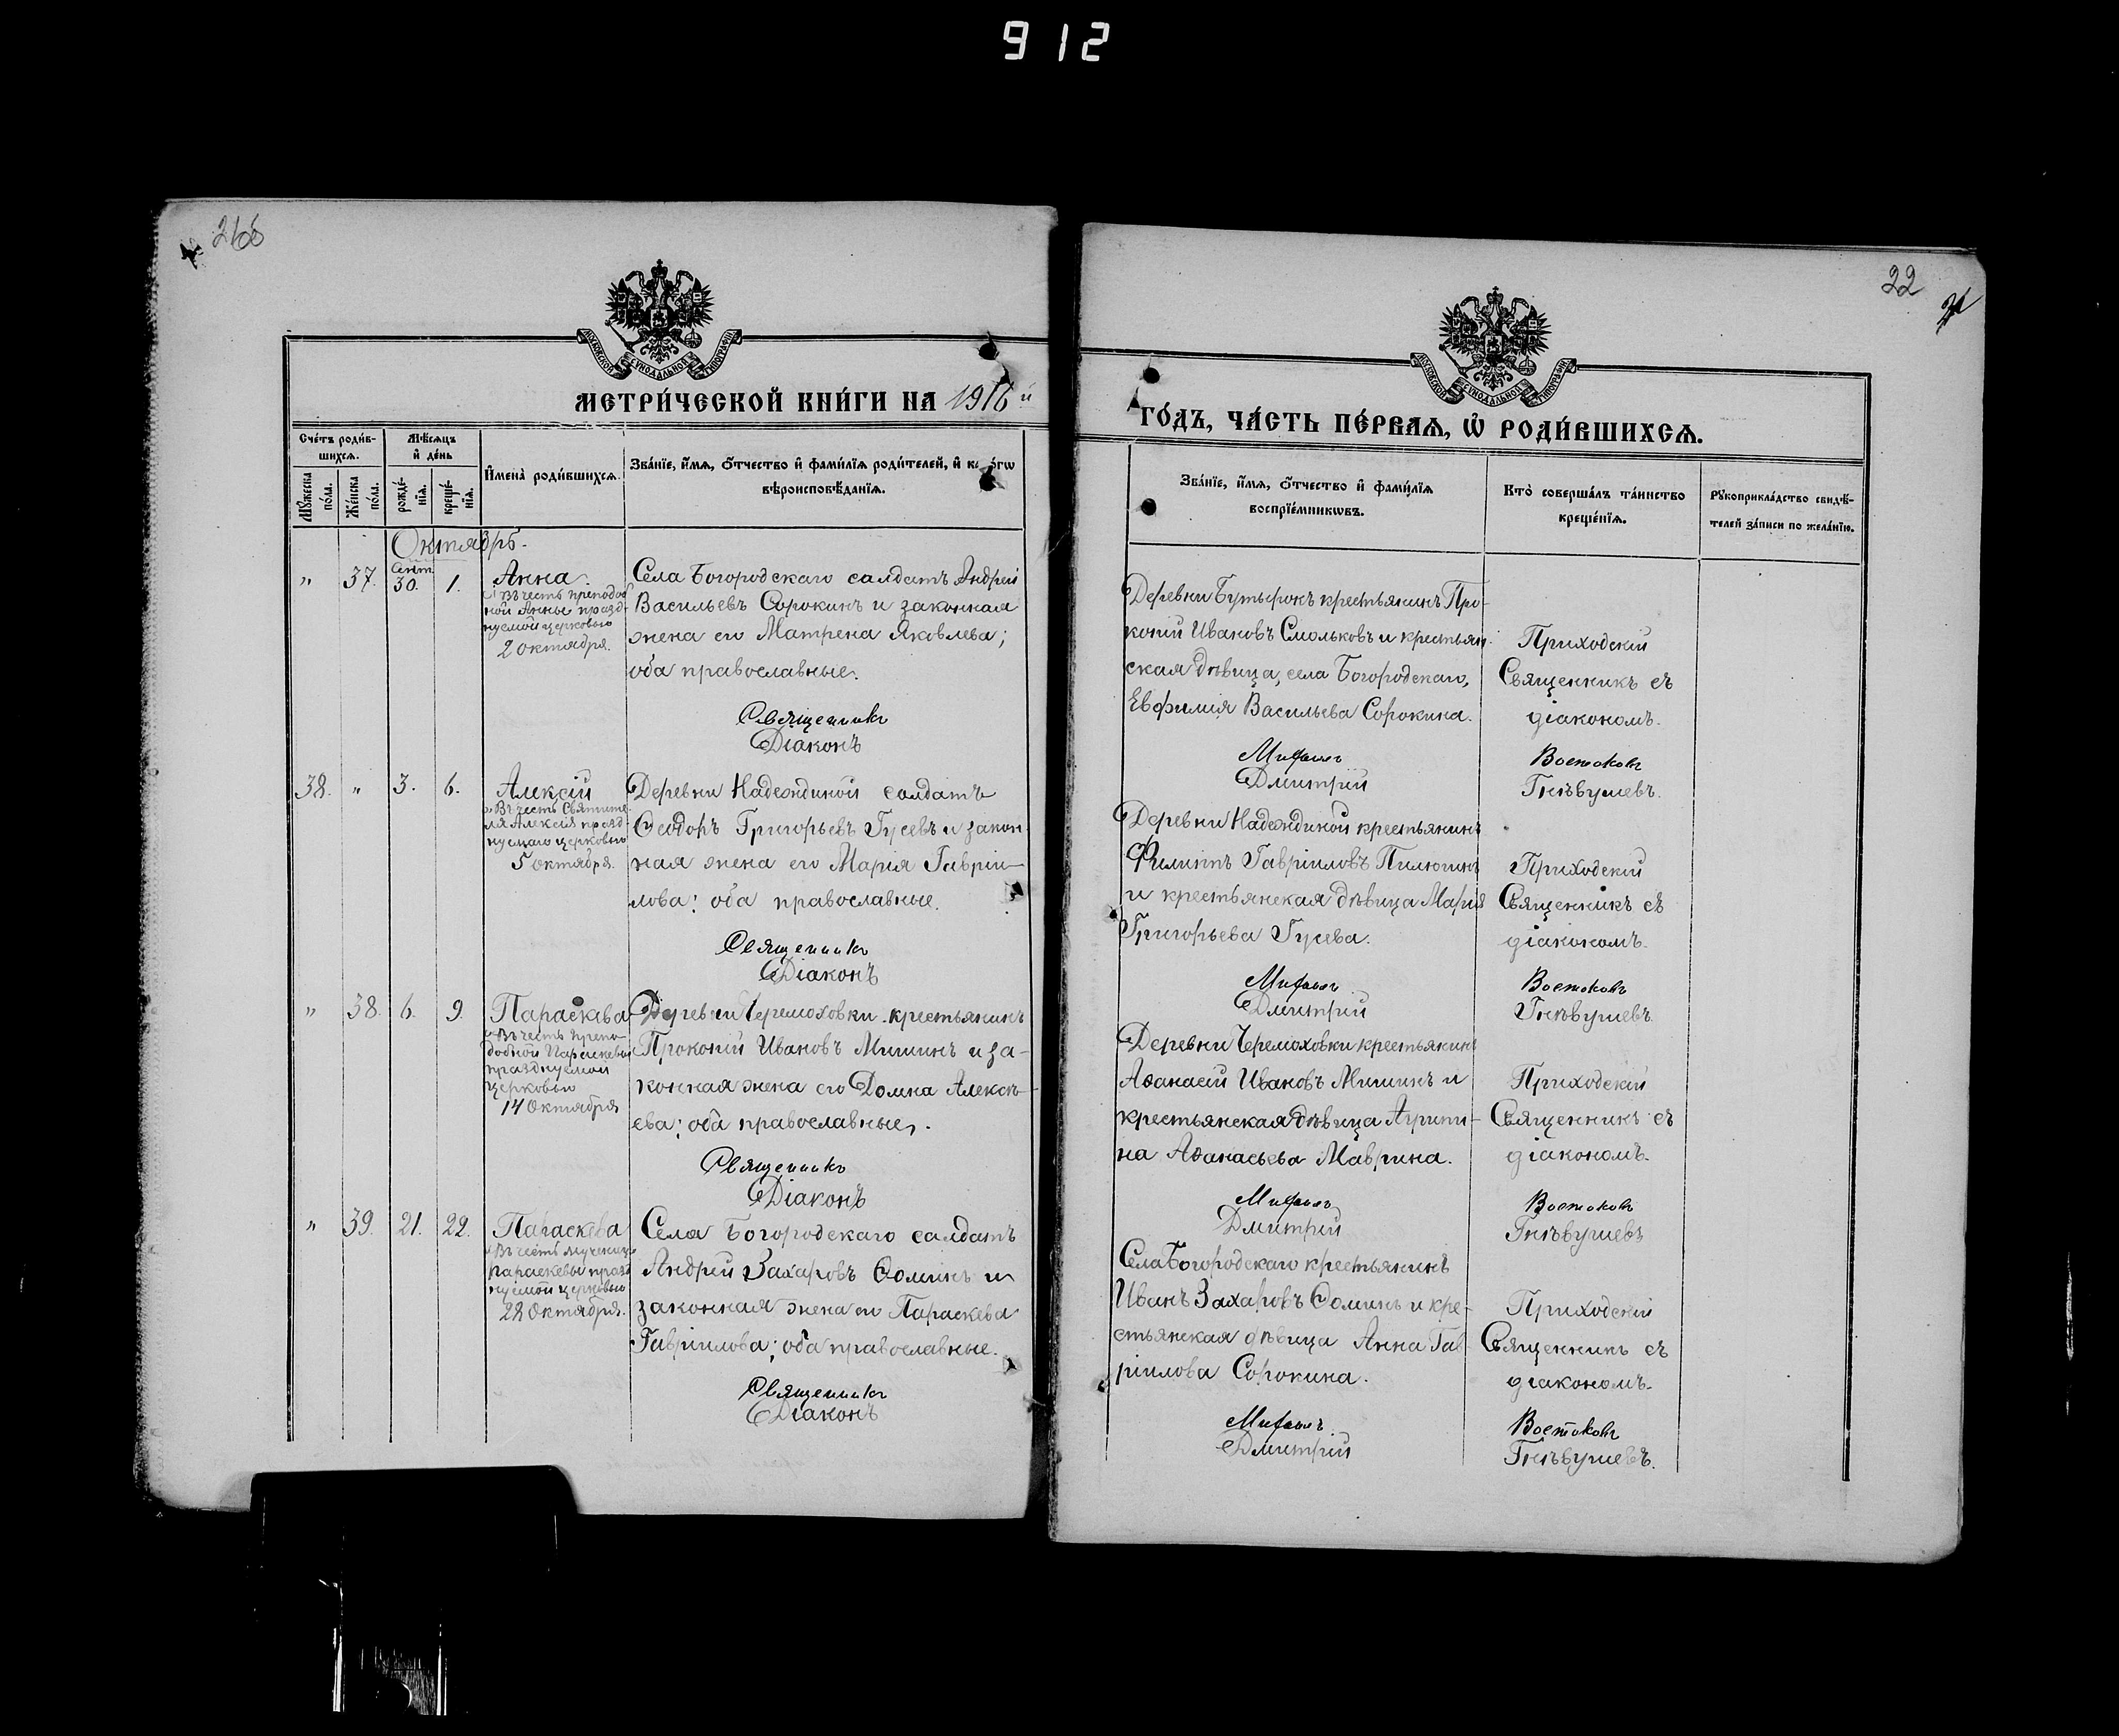 912
266
22
МОСКОВСКОЙ СѴНОДАЛЬНОЙ ТИПОГРАФІИ
МОСКОВСКОЙ СѴНОДАЛЬНОЙ ТИПОГРАФІИ
МЕТРИ́ЧЕСКОЙ КНИ́ГИ НА 1916 й
ГО́ДЪ, ЧА́СТЬ ПЕ́РВАЯ, Ѡ҆ РОДИ́ВШИХСЯ.
Сче́тъ роди́в-
шихся.
Мѣ́сяцъ
и҆ де́нь
Мꙋ́жеска по́ла.
Же́нска по́ла.
рожде́-
нїя.
креще́-
нїя.
И҆мена̀ роди́вшихся.
Зва́нїе, и҆́мя, ѻ҆́тчество и҆ фами́лїя роди́телей, и҆
вѣроисповѣ́данїя.
Зва́нїе, и҆́мя, ѻ҆́тчество и҆ фами́лїя
воспрїе́мникѡвъ.
Кто̀ соверша́лъ та́инство
креще́нїя.
Рꙋкоприкла́дство свидѣ́-
телей за́писи по жела́нїю.
Октябрь.
" 37. Сент. 30. 1. Анна.
Въ честь преподоб
ной Анны празд-
нуемой церковью
2 октября.
Села Богородскаго солдатъ Андрей
Васильевъ Сорокинъ и законная
жена его Матрена Яковлева;
оба православные.
Священникъ
Діаконъ
Деревни Бутырокъ крестьянинъ Про-
копій Ивановъ Смольковъ и крестьян-
ская дѣвица, села Богородскаго,
Евфимія Васильева Сорокина.
Михаилъ
Дмитрій
Приходскій
Священникъ съ
діакономъ.
Востоковъ
Гнѣвушевъ.
38. " 3. 6. Алексій
Въ честь Святите-
ля Алексія празд-
нуемаго церковью
5 октября.
Деревни Надеждиной солдатъ
Ѳеодоръ Григорьевъ Гусевъ и закон-
ная жена его Марія Гаврі-
лова; оба православные.
Священникъ
Діаконъ
Деревни Надеждиной крестьянинъ
Филиппъ Гавріиловъ Пилюгинъ
и крестьянская дѣвица Марія
Григорьева Гусева.
Михаилъ
Дмитрій
Приходскій
Священникъ съ
діакономъ.
Востоковъ
Гнѣвушевъ.
" 38. 6. 9. Параскева
Въ честь препо-
добной Параскевы
празднуемой
церковью
14 Октября
Деревни Черемоховки крестьянинъ
Прокопій Ивановъ Мишинъ и за-
конная жена его Домна Алексѣ-
ева; оба православные.
Священникъ
Діаконъ
Деревни Черемоховки крестьянинъ
Аѳанасій Ивановъ Мишинъ и
крестьянская дѣвица Агрипи-
на Аѳанасьева Маврина.
Михаилъ
Дмитрій
Приходскій
Священникъ съ
діакономъ.
Востоковъ
Гнѣвушевъ
" 39. 21. 22. Параскева
Въ честь мученицы
Параскевы празд
нуемой церковью
28 Октября.
Села Богородскаго солдатъ
Андрей Захаровъ Ѳоминъ и
законная жена его Параскева
Гавріилова; оба православные.
Священникъ
Діаконъ
Села Богородскаго крестьянинъ
Иванъ Захаровъ Ѳоминъ и кре-
стьянская дѣвица Анна Гав-
ріилова Сорокина.
Михаилъ
Дмитрій
Приходскій
Священникъ съ
діакономъ.
Востоковъ
Гнѣвушевъ.